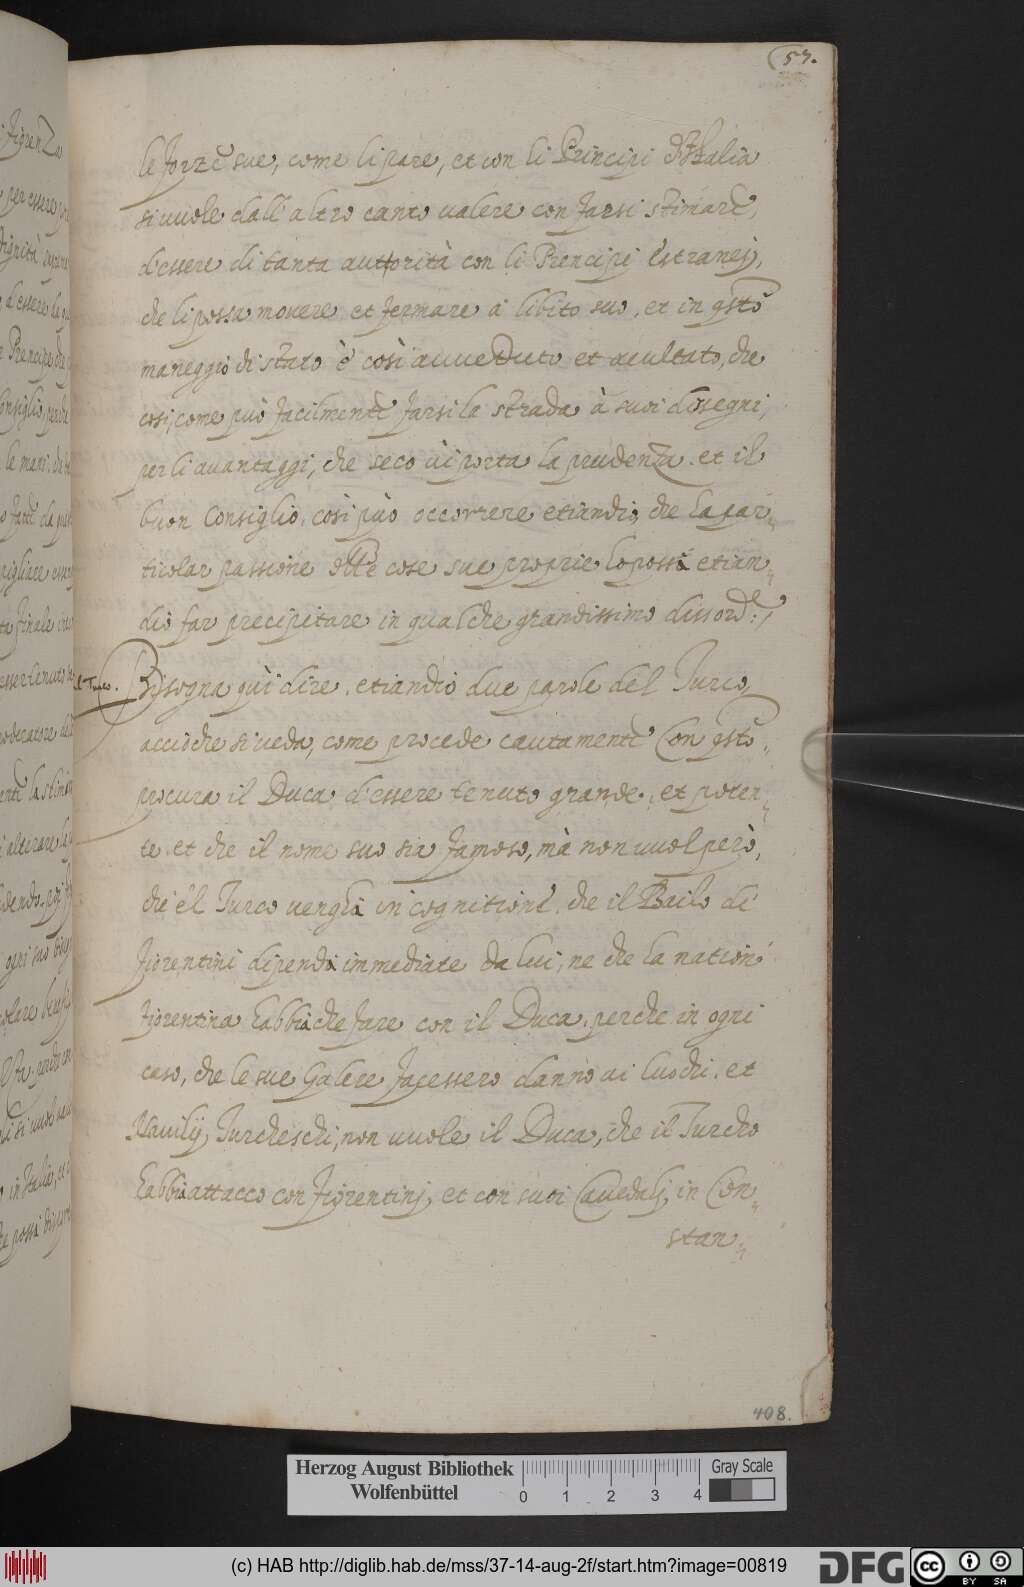 57.
le forze sue, come li pare, et con li Principi d'Italia
si vuole dall'altro canto valere con farsi stimare,
d'essere di tanta auttorità con li Prencipi Estranei,
che li possa movere et fermare à libito suo, et in qsto
maneggio di stato è così avveduto et occultato, che
cosi, come può facilmente farsi la strada à suoi dissegni,
per li avantaggi, che seco vi porta la prudenza, et il
buon Consiglio, così può occorrere etiandio, che la par„
ticolar passione dlle cose sue proprie lo possa etian„
dio far precipitare in qualche grandissimo dissord.e
il Turco. Bisogna quì dire, etiandio due parole del Turco,
acciò che si veda, come procede cautamente Con qsto„
procura il Duca d'essere tenuto grande, et poten„
te et che il nome suo sia famoso, mà non vuol però,
che 'l Turco venga in cognitione, che il Bailo de
Fiorentini dipenda immediate da lui, ne che la natione
fiorentina habbia che fare con il Duca, perche in ogni
caso, che le sue Galere facessero danno ai luochi, et
Navilij Turcheschi, non vuole il Duca, che il Turcho
habbia attacco con fiorentini, et con suoi Cavedali, in Con„
stan„
408.
Herzog August Bibliothek
Wolfenbüttel
0 1 2 3 4
Gray Scale
(c) HAB http://diglib.hab.de/mss/37-14-aug-2f/start.htm?image=00819
DFG
cc BY SA